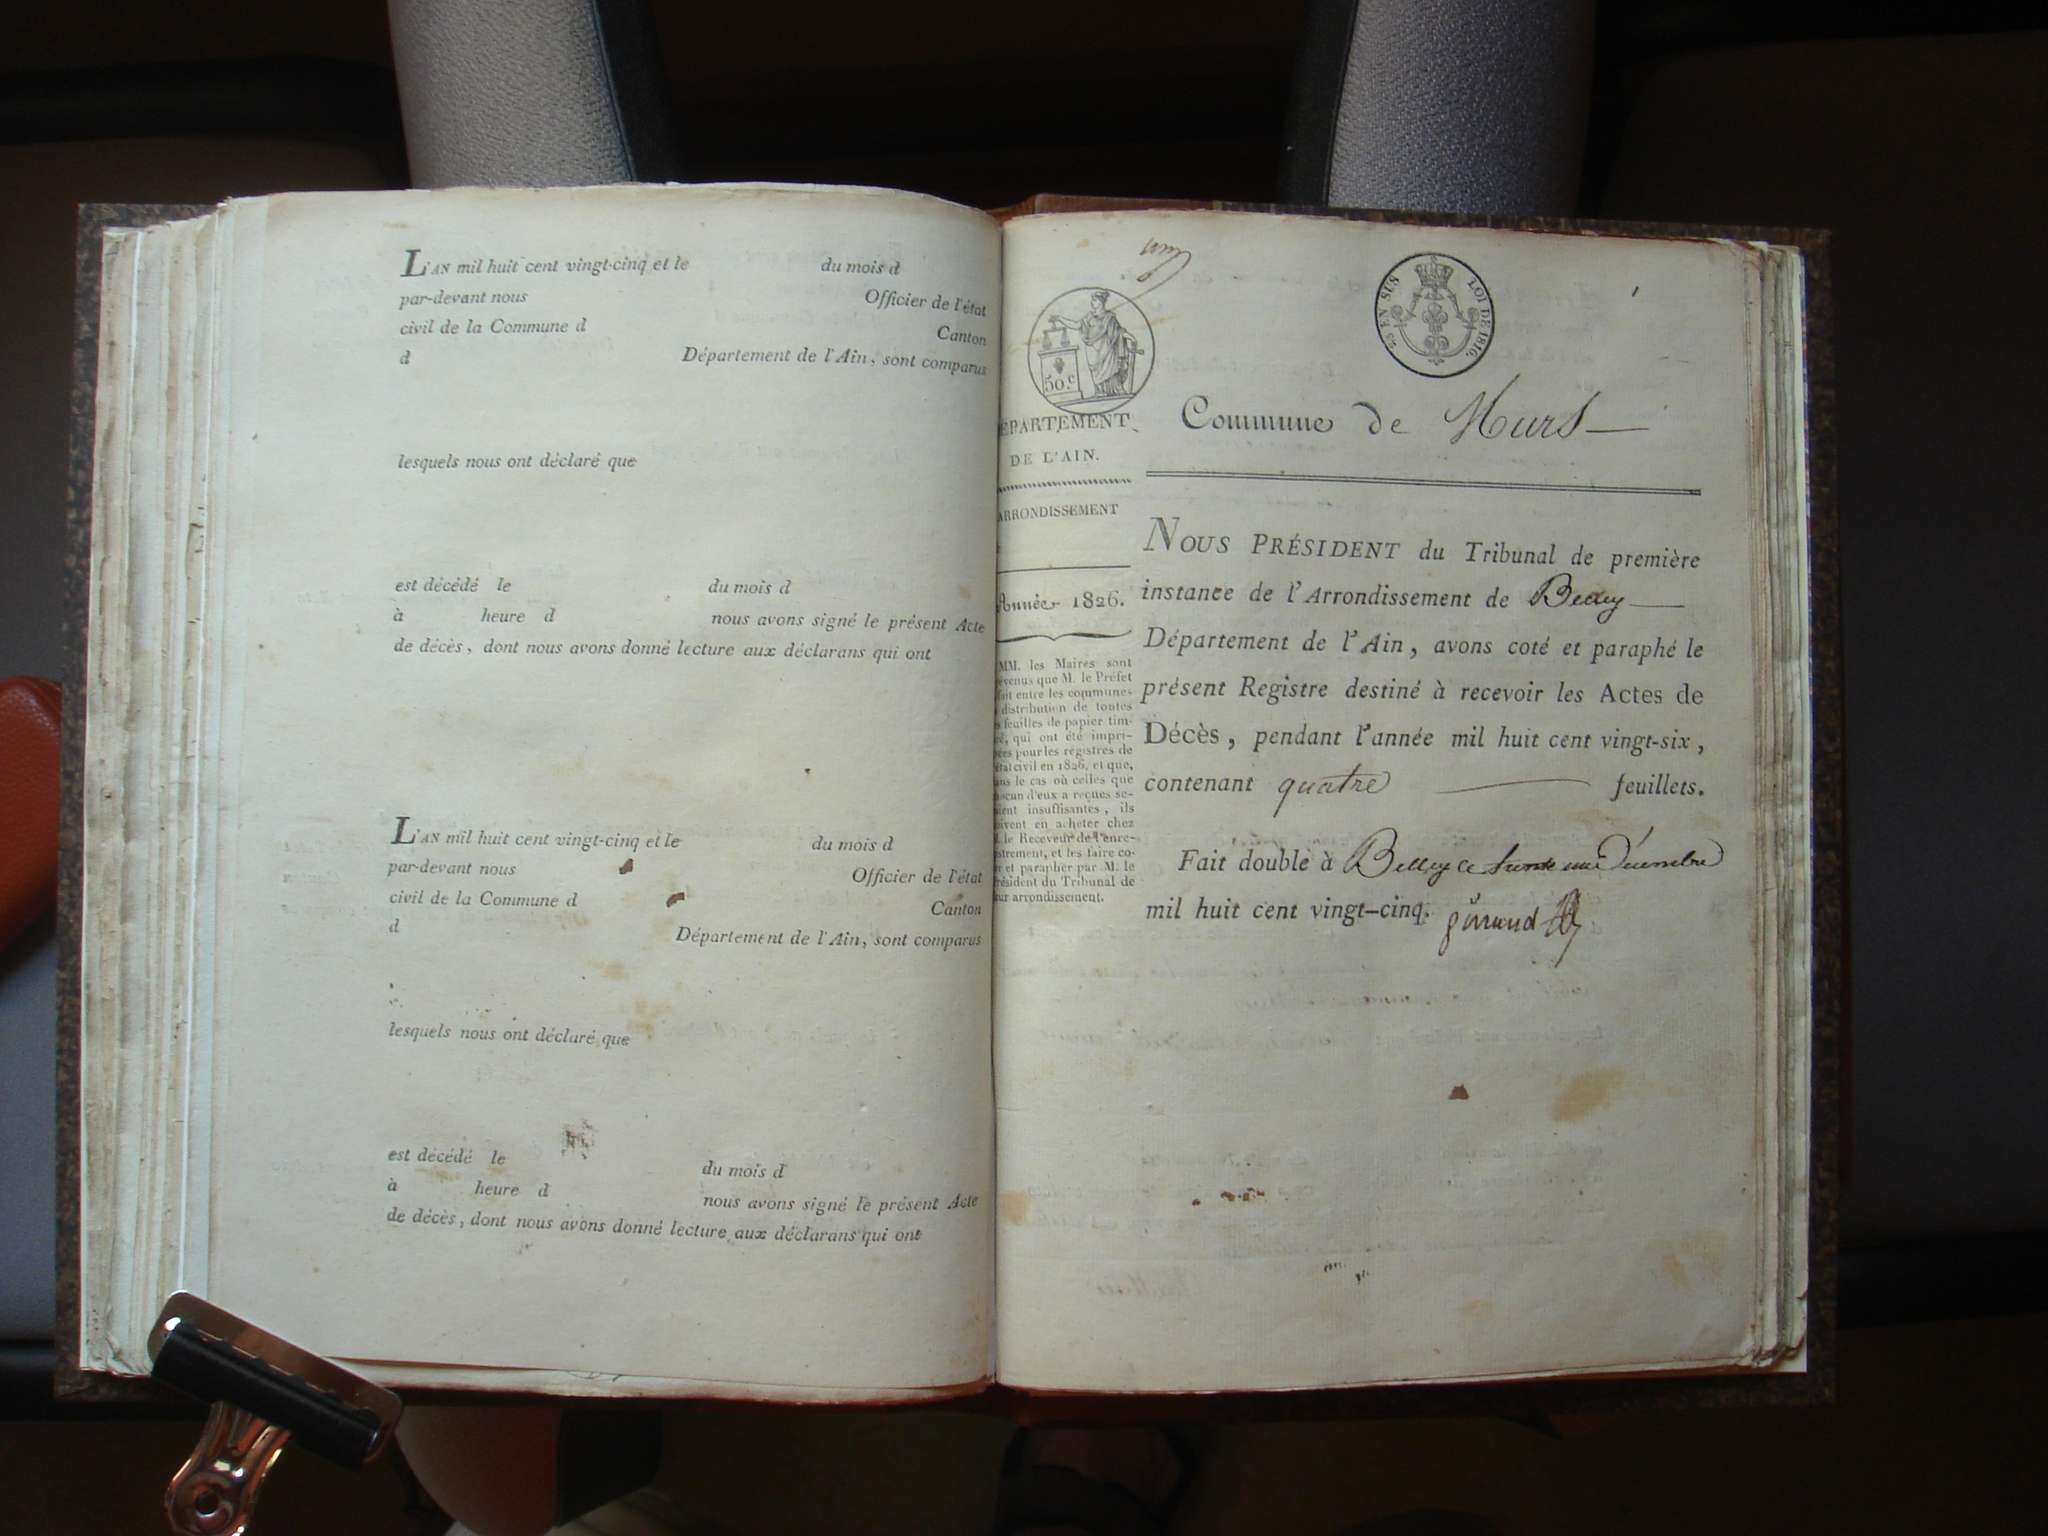 L'AN mil huit cent vingt-cinq et le du mois d
par-devant nous Officier de l'état
civil de la Commune d Canton
d Département de l'Ain, sont comparus
lesquels nous ont déclaré que
est décédé le du mois d
à heure d nous avons signé le présent Acte
de décès, dont nous avons donné lecture aux déclarans qui ont
L'AN mil huit cent vingt-cinq et le du mois d
par-devant nous Officier de l'état
civil de la Commune d Canton
d Département de l'Ain, sont comparus
lesquels nous ont déclaré que
est décédé le du mois d
à heure d nous avons signé le présent Acte
de décès, dont nous avons donné lecture aux déclarans qui ont
EN SUS LOI DE 1816.
50.c
ÉPARTEMENT
DE L'AIN.
ARRONDISSEMENT
Année 1826.
MM. les Maires sont
évenus que M. le Préfet
ait entre les communes
distribution de toutes
s feuilles de papier tim-
ré, qui ont été impri-
ées pour les registres de
état civil en 1826, et que,
ans le cas où celles que
acun d'eux a reçues se-
aient insuffisantes, ils
oivent en acheter chez
. le Receveur de l'enre-
istrement, et les faire co-
er et parapher par M. le
résident du Tribunal de
eur arrondissement.
Commune de Murs
NOUS PRÉSIDENT du Tribunal de première
instance de l'Arrondissement de Belley
Département de l'Ain, avons coté et paraphé le
présent Registre destiné à recevoir les Actes de
Décès, pendant l'année mil huit cent vingt-six,
contenant quatre feuillets.
Fait double à Belley ce trente un Décembre
mil huit cent vingt-cinq.